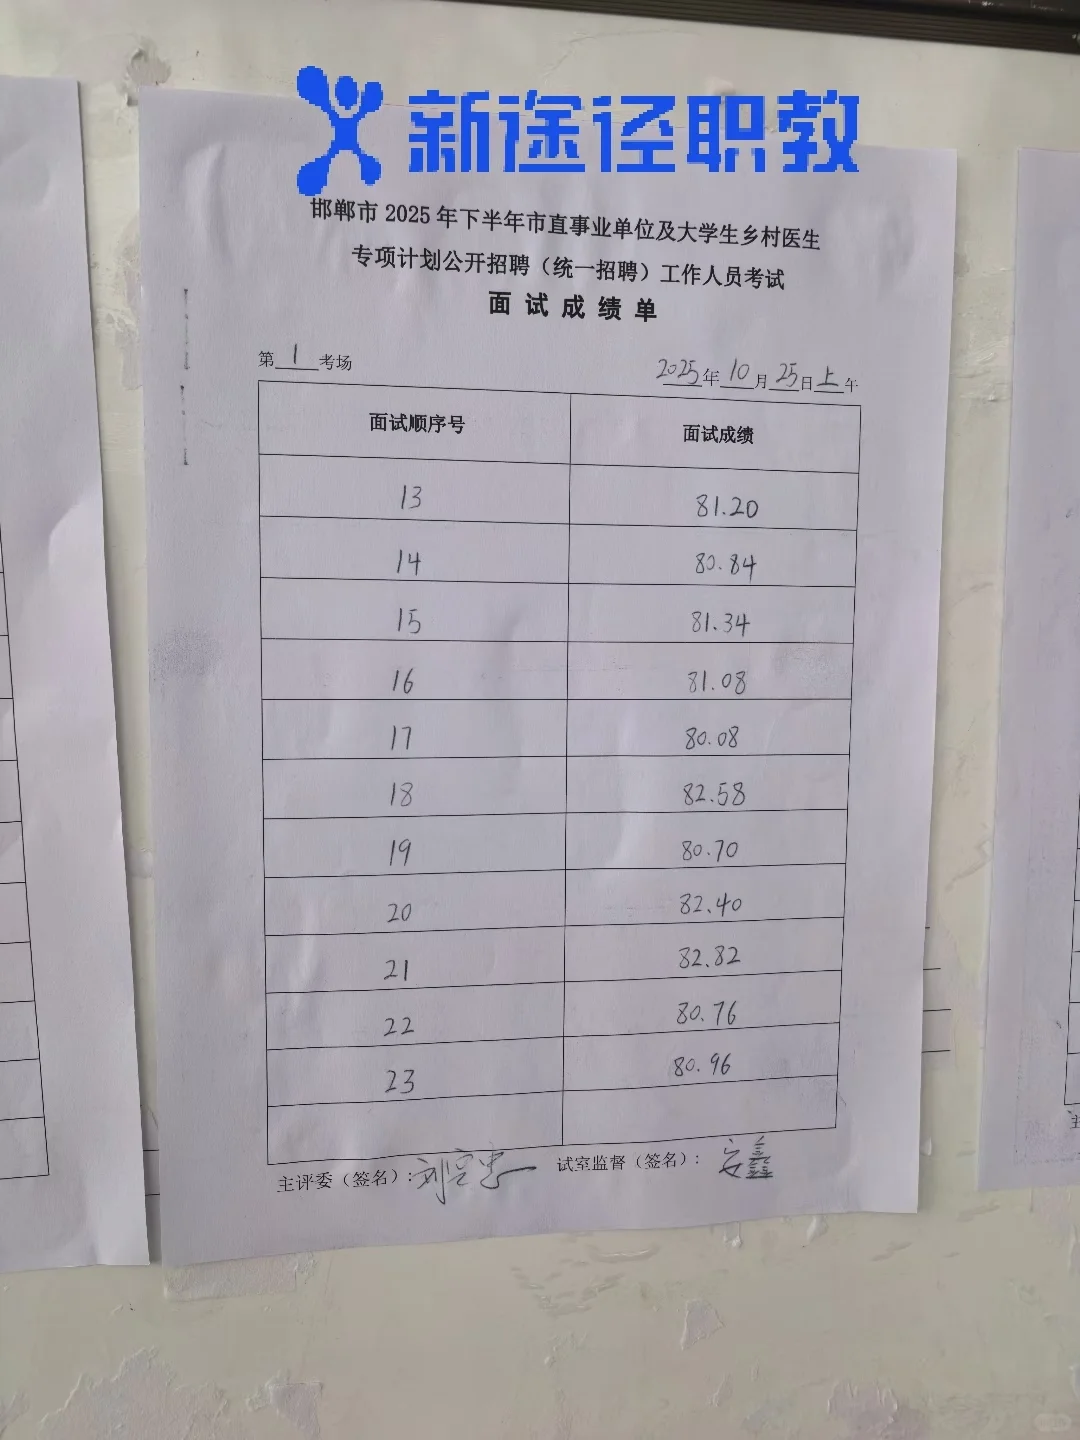 新途径职教
邯郸市 2025 年下半年市直事业单位及大学生乡村医生
专项计划公开招聘（统一招聘）工作人员考试
面试成绩单
第 1 考场 2025年 10 月 25日 上 午
面试顺序号 面试成绩
13 81.20
14 80.84
15 81.34
16 81.08
17 80.08
18 82.58
19 80.70
20 82.40
21 82.82
22 80.76
23 80.96
主评委（签名）： 试室监督（签名）：